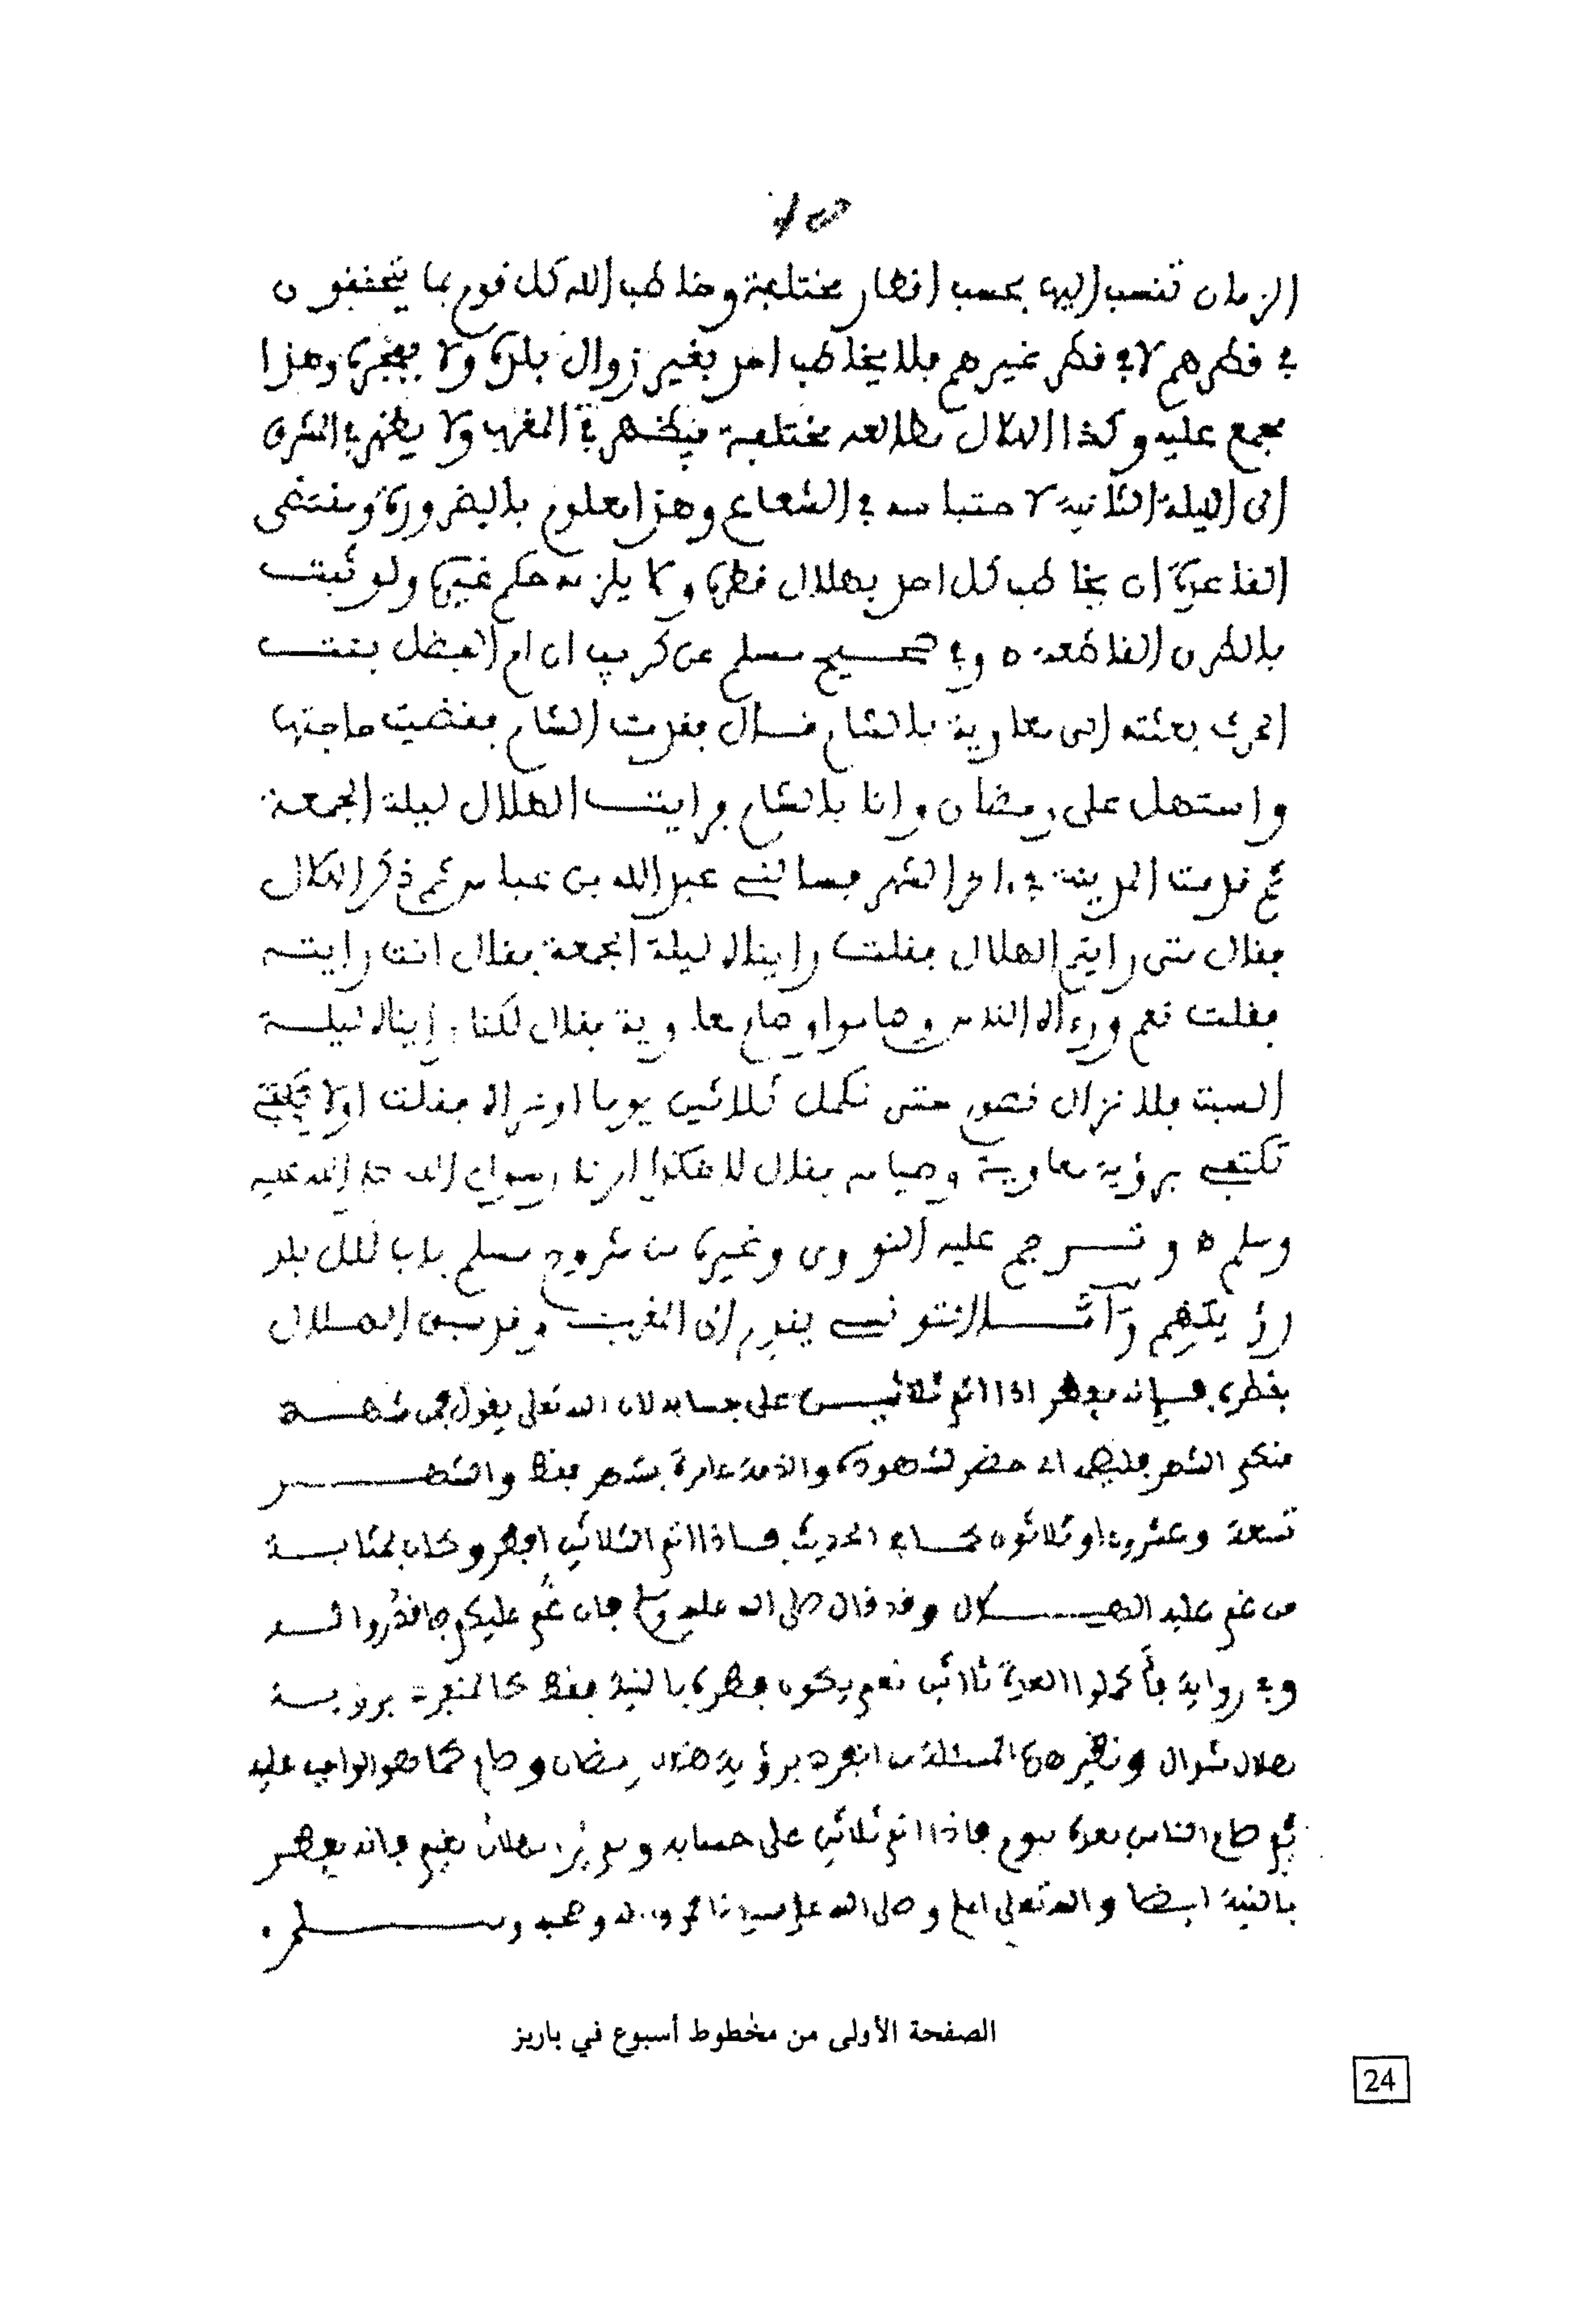 الزمان تنسب اليها بحسب اقطار مختلفة وخاطب الله كل قوم بما يتحققون
في قطرهم لا في قطر غيرهم فلا يخاطب احد بغير زوال بلده ولا بفجره وهذا
مجمع عليه وكذا الهلال مطالعه مختلفة فيظهر في المغرب ولا يظهر في المشرق
الى الليلة الثانية لاحتباسه في الشعاع وهذا معلوم بالضرورة ومقتضى
القاعدة ان يخاطب كل احد بهلال قطره ولا يلزمه حكم غيره ولو ثبت
بالطرق القاطعة ه وفي صحيح مسلم عن كريب ان ام الفضل بنت
الحرث بعثته الى معاوية بالشام قال فقدمت الشام فقضيت حاجتها
واستهل علي رمضان وانا بالشام فرايت الهلال ليلة الجمعة
ثم قدمت المدينة في ءاخر الشهر فسالني عبد الله بن عباس ثم ذكر الهلال
فقال متى رايتم الهلال فقلت رايناه ليلة الجمعة فقال انت رايته
فقلت نعم ورءاه الناس وصاموا وصام معاوية فقال لكنا رايناه ليلة
السبت فلا نزال نصوم حتى نكمل ثلاثين يوما او نراه فقلت اولا
تكتفي برؤية معاوية وصيامه فقال لا هكذا امرنا رسول الله صلى الله عليه
وسلم ه وترجم عليه النووي وغيره من شروح مسلم باب لكل بلد
رؤيتهم وآما التونسي يقدم الى المغرب وقد سبق الهلال
بقطره فإنه يفطر اذا اتم ثلاثيـن على حسابه لان الله تعلى يقول فمن شهد
منكم الشهر فليصمه اي حضر لشهوده والذمة عامرة بشهر فقط والشهر
تسعة وعشرون او ثلاثون كما في الحديث فاذا اتم الثلاثين افطر وكان بمثابة
من غم عليه الهـلال وقد قال صلى الله عليه وسلم فان غُم عليكم فاقدُروا له
وفي رواية فأكملوا العدة ثلاثين نعم يكون فطره بالنية فقط كالمنفرد برؤية
هلال شوال ونظير هذه المسئلة من انفرد برؤية هلال رمضان وصام كما هو الواجب عليه
ثم صام الناس بعده بيوم فاذا اتم ثلاثين على حسابه ولم ير هلال بغيم فانه يفطر
بالنية ايضا والله تعلى اعلم وصلى الله على سيدنا محمد وءاله وصحبه وسلم
الصفحة الأولى من مخطوط أسبوع في باريز
24